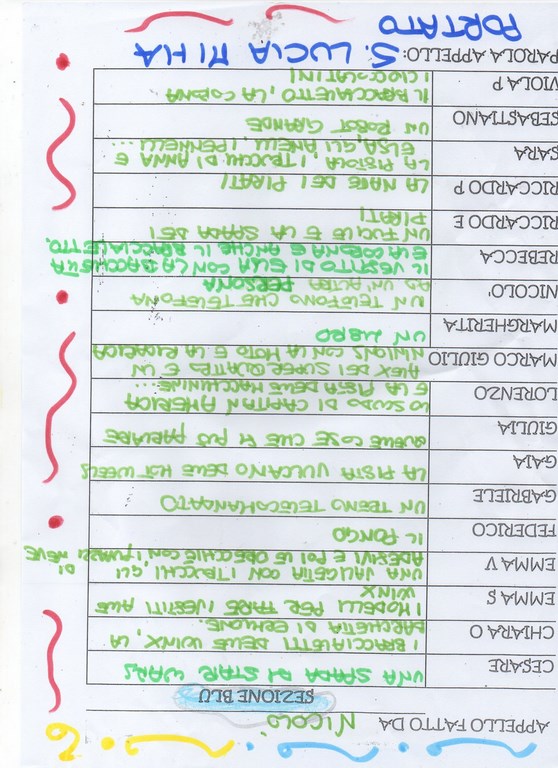 APPELLO FATTO DA NICOLO'
SEZIONE BLU
CESARE UNA SPADA DI STAR WARS
CHIARA O I BRACCIALETTI DELLE WINX, LA
BARCHETTA DI ERMIONE.
EMMA S I MODELLI PER FARE I VESTITI ALLE
WINX
EMMA V UNA VALIGETTA CON I TRUCCHI, GLI
ADESIVI E POI LE ORECCHIE CON DI NEVE
FEDERICO IL PONGO
GABRIELE UN TRENO TELECOMANDATO
GAIA LA PISTA VULCANO DELLE HOT WEELS
GIULIA QUELLE COSE CHE PUÒ PARLARE
LORENZO LO SCUDO DI CAPITAN AMERICA
E LA PISTA DELLE MACCHININE...
MARCO GIULIO ALEX DEI SUPER QUATTRO E UN
CON LA MOTO E LA RICARICA
MARGHERITA UN LIBRO
NICOLO' UN TELEFONO CHE TELEFONA
AD UN'ALTRA PERSONA
REBECCA IL VESTITO DI ELSA CON LA BACCHETTA
E LA CORONA E ANCHE IL BRACCIALETTO.
RICCARDO E UN FUCILE E LA SPADA DEI
PIRATI
RICCARDO P LA NAVE DEI PIRATI
SARA LA PISTOLA, I TRUCCHI DI ANNA E
ELSA, GLI ANELLI, I PENNELLI...
SEBASTIANO UN ROBOT GRANDE
VIOLA P IL BRACCIALETTO, LA CORONA
I CIOCCOLATINI
PAROLA APPELLO: S. LUCIA MI HA
PORTATO